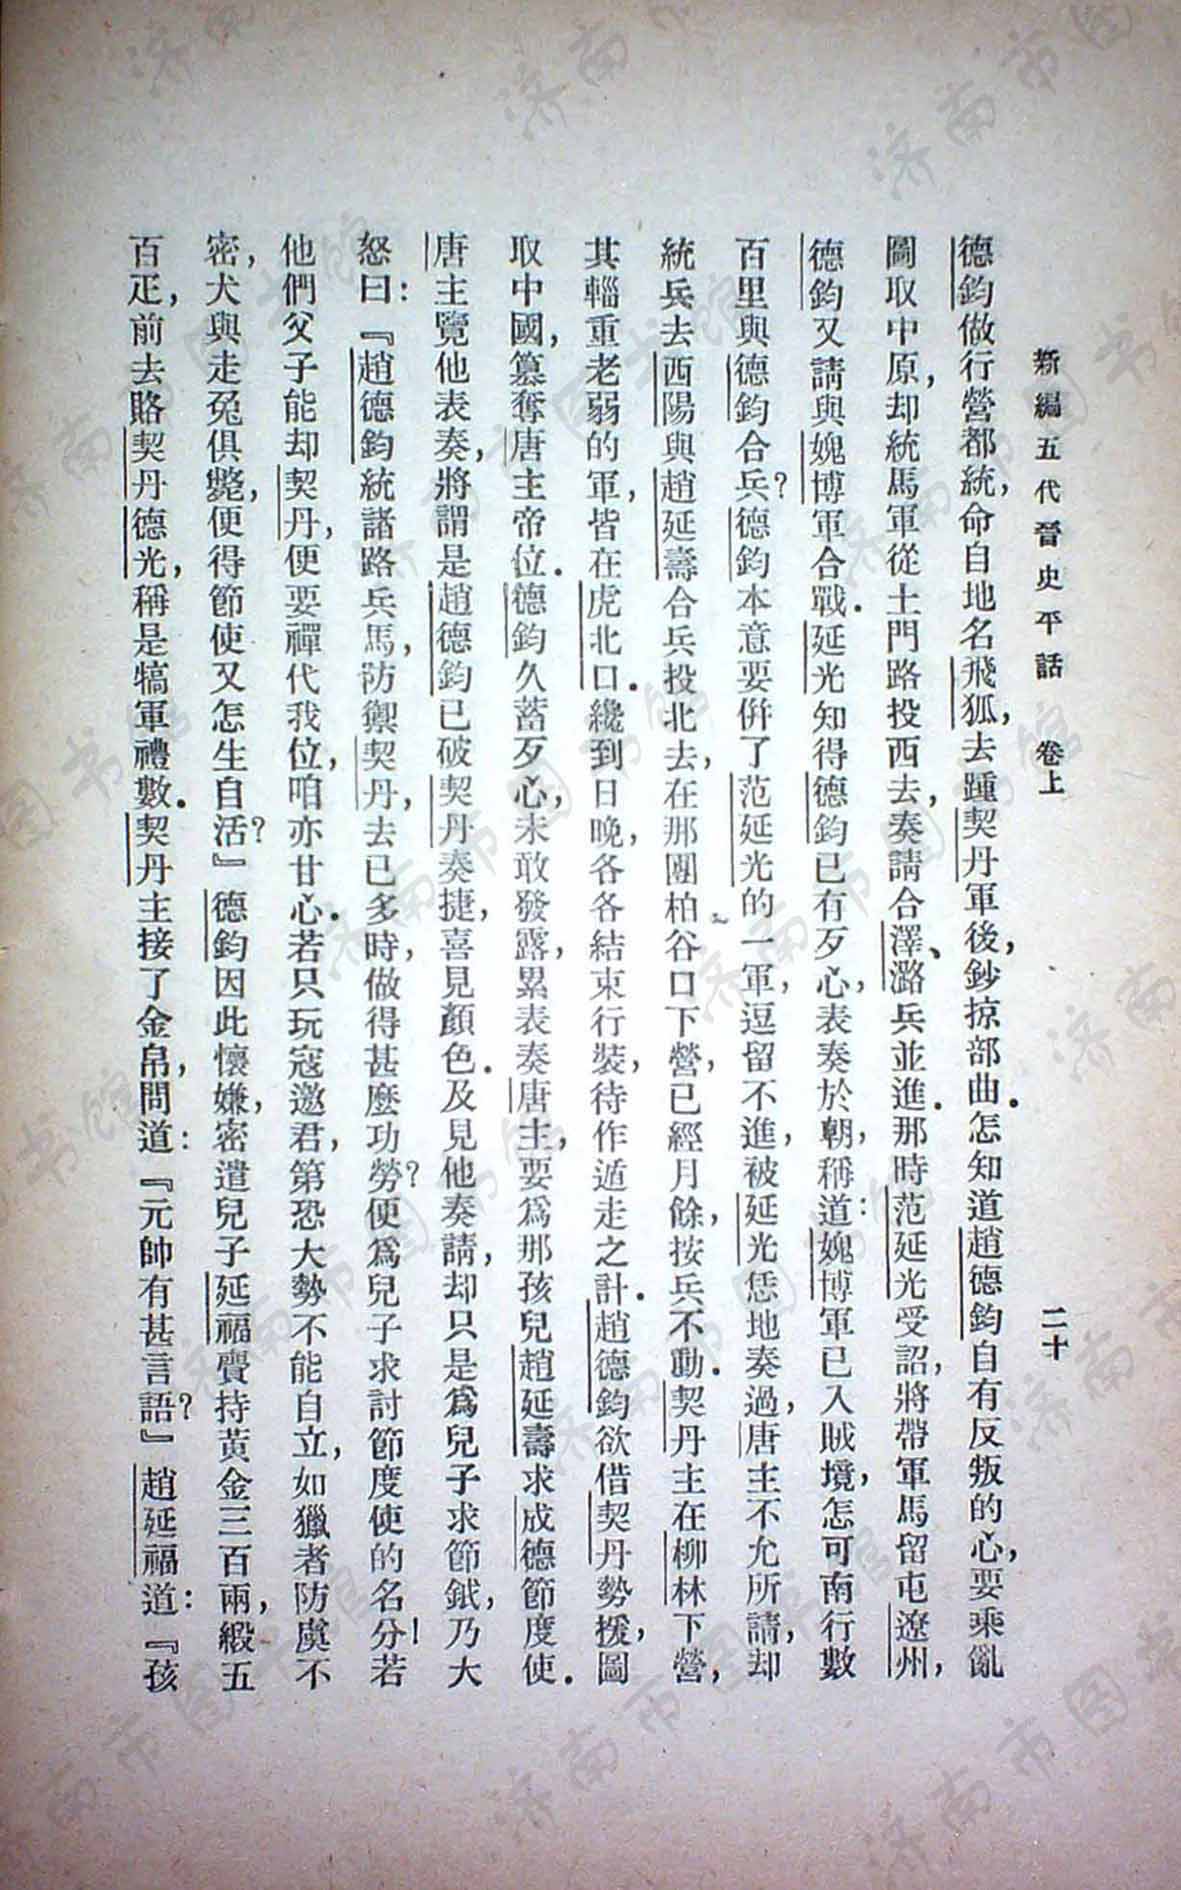 新編五代晉史平話　卷上　二十
德鈞做行營都統，命自地名飛狐，去踵契丹軍後，鈔掠部曲．怎知道趙德鈞自有反叛的心，要乘亂
圖取中原，却統馬軍從土門路投西去，奏請合澤、潞兵並進．那時范延光受詔，將帶軍馬留屯遼州，
德鈞又請與媿博軍合戰．延光知得德鈞已有歹心，表奏於朝，稱道：媿博軍已入賊境，怎可南行數
百里與德鈞合兵？德鈞本意要併了范延光的一軍，逗留不進，被延光恁地奏過，唐主不允所請，却
統兵去西陽與趙延壽合兵投北去，在那團柏谷口下營，已經月餘，按兵不動．契丹主在柳林下營，
其輜重老弱的軍，皆在虎北口．纔到日晚，各各結束行裝，待作遁走之計．趙德鈞欲借契丹勢援，圖
取中國，篡奪唐主帝位．德鈞久蓄歹心，未敢發露，累表奏唐主，要爲那孩兒趙延壽求成德節度使．
唐主覽他表奏，將謂是趙德鈞已破契丹奏捷，喜見顏色．及見他奏請，却只是爲兒子求節鉞，乃大
怒曰：『趙德鈞統諸路兵馬，防禦契丹，去已多時，做得甚麼功勞？便爲兒子求討節度使的名分！若
他們父子能却契丹，便要禪代我位，咱亦甘心．若只玩寇邀君，第恐大勢不能自立，如獵者防虞不
密，犬與走兔俱斃，便得節使又怎生自活？』德鈞因此懷嫌，密遣兒子延福賫持黃金三百兩，緞五
百疋，前去賂契丹德光，稱是犒軍禮數．契丹主接了金帛，問道：『元帥有甚言語？』趙延福道：『孩
济南市图书馆